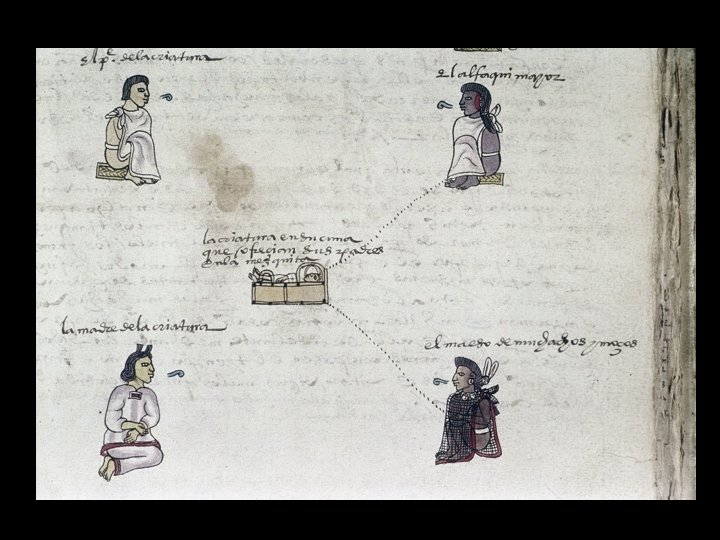 el pe. de la criatura
el alfaqui mayor
la criatura en su cuna
que (ofrecian sus padres
en la mezquita
la madre de la criatura
el maeso de muchachos y moços